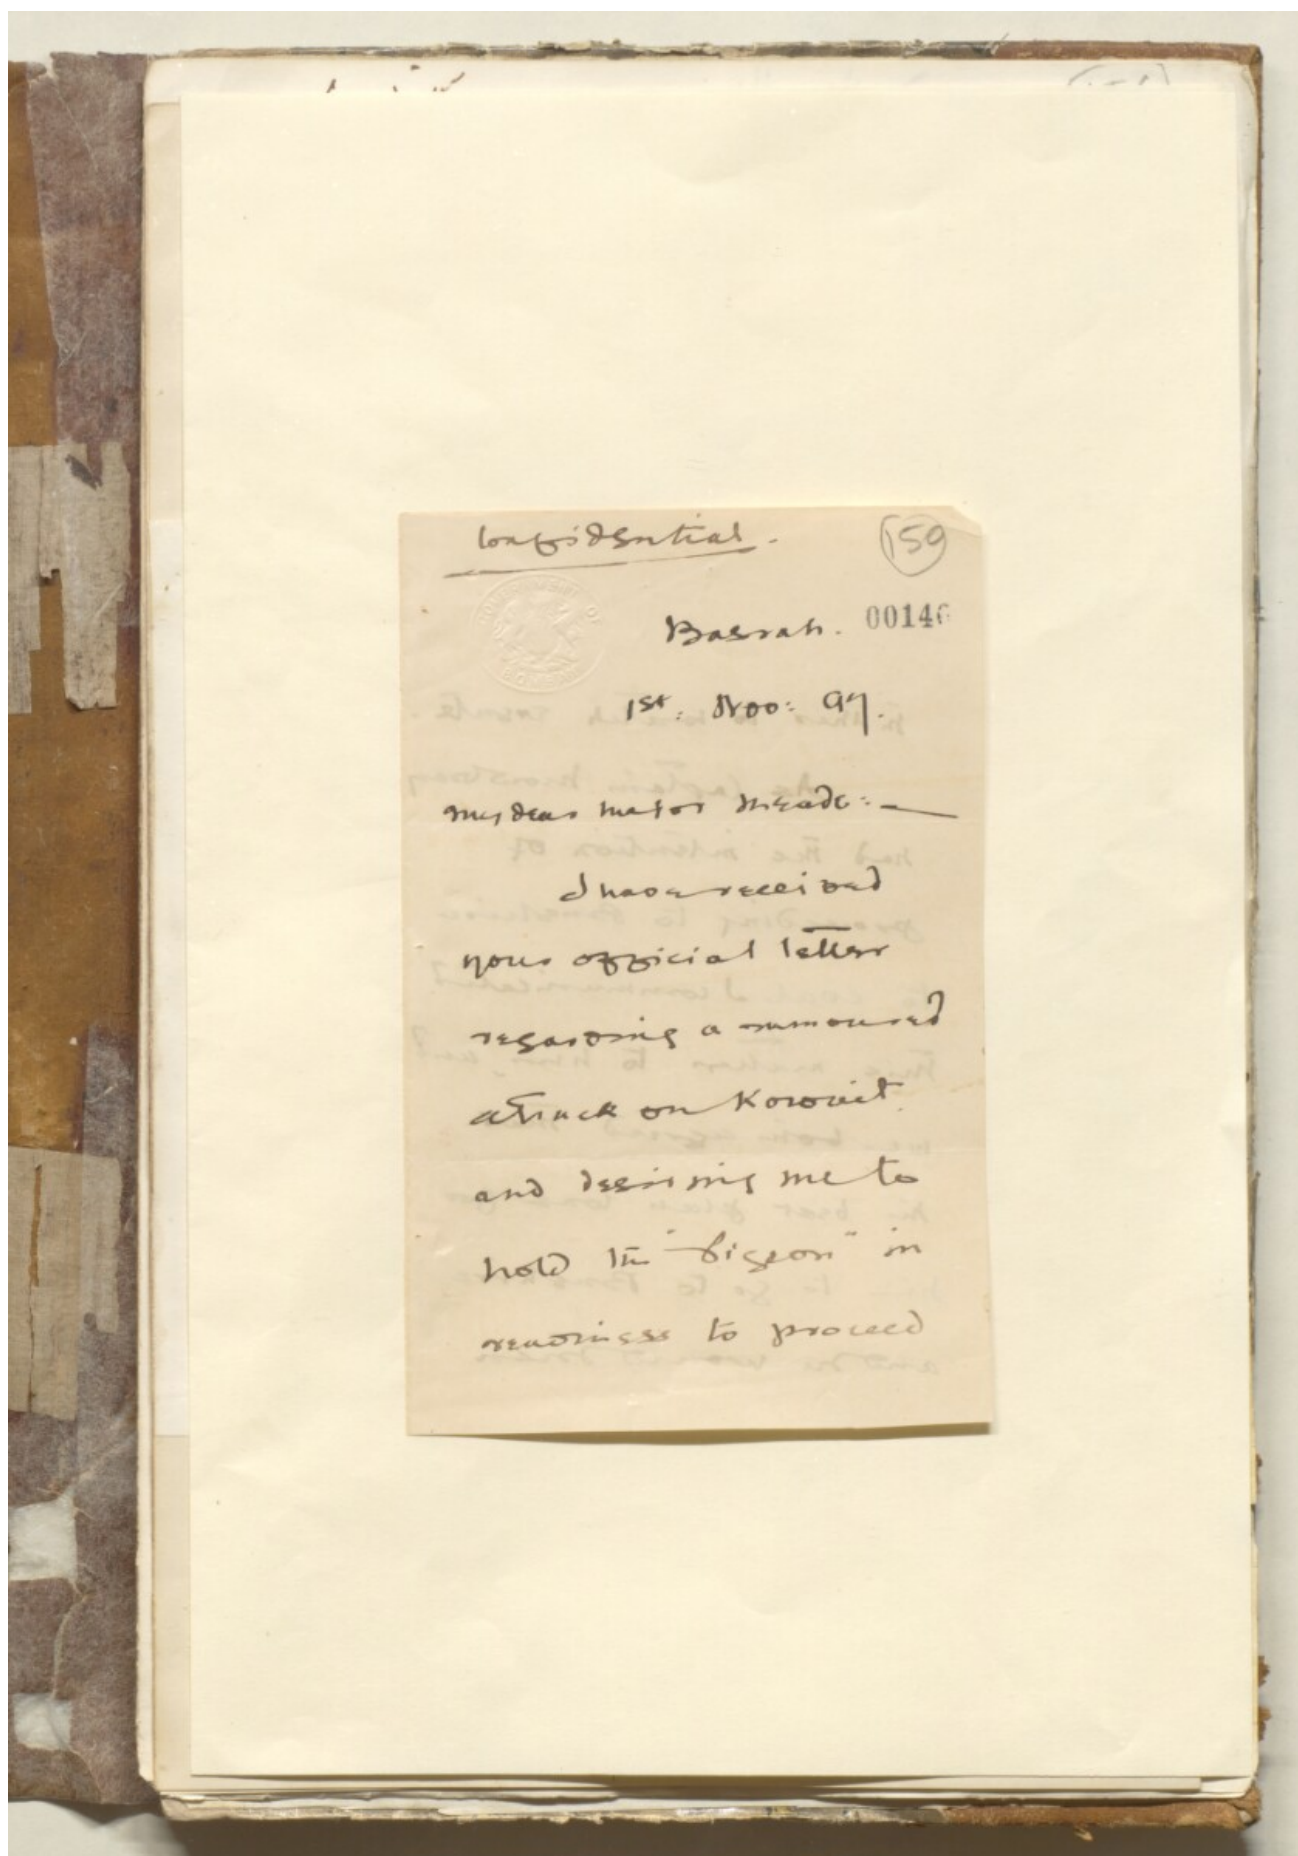 Confidential.
159
Basrah. 00146
1st. Nov: 97.
My dear Major Meade:—
I have received
your official letter
regarding a rumoured
attack on Koweit
and desiring me to
hold the "Pigeon" in
readiness to proceed